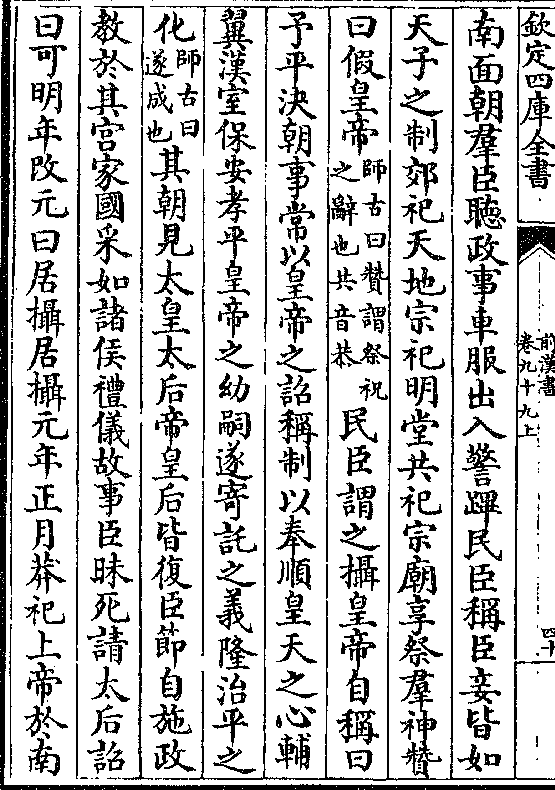 欽定四庫全書
前漢書
卷九十九上
四十
南面朝羣臣聽政事車服出入警蹕民臣稱臣妾皆如
天子之制郊祀天地宗祀明堂共祀宗廟享祭羣神贊
曰假皇帝師古曰贊謂祭祝之辭也共音恭民臣謂之攝皇帝自稱曰
予平決朝事常以皇帝之詔稱制以奉順皇天之心輔
翼漢室保安孝平皇帝之幼嗣遂寄託之義隆治平之
化師古曰遂成也其朝見太皇太后帝皇后皆復臣節自施政
教於其宫家國采如諸侯禮儀故事臣昧死請太后詔
曰可明年改元曰居攝居攝元年正月莽祀上帝於南